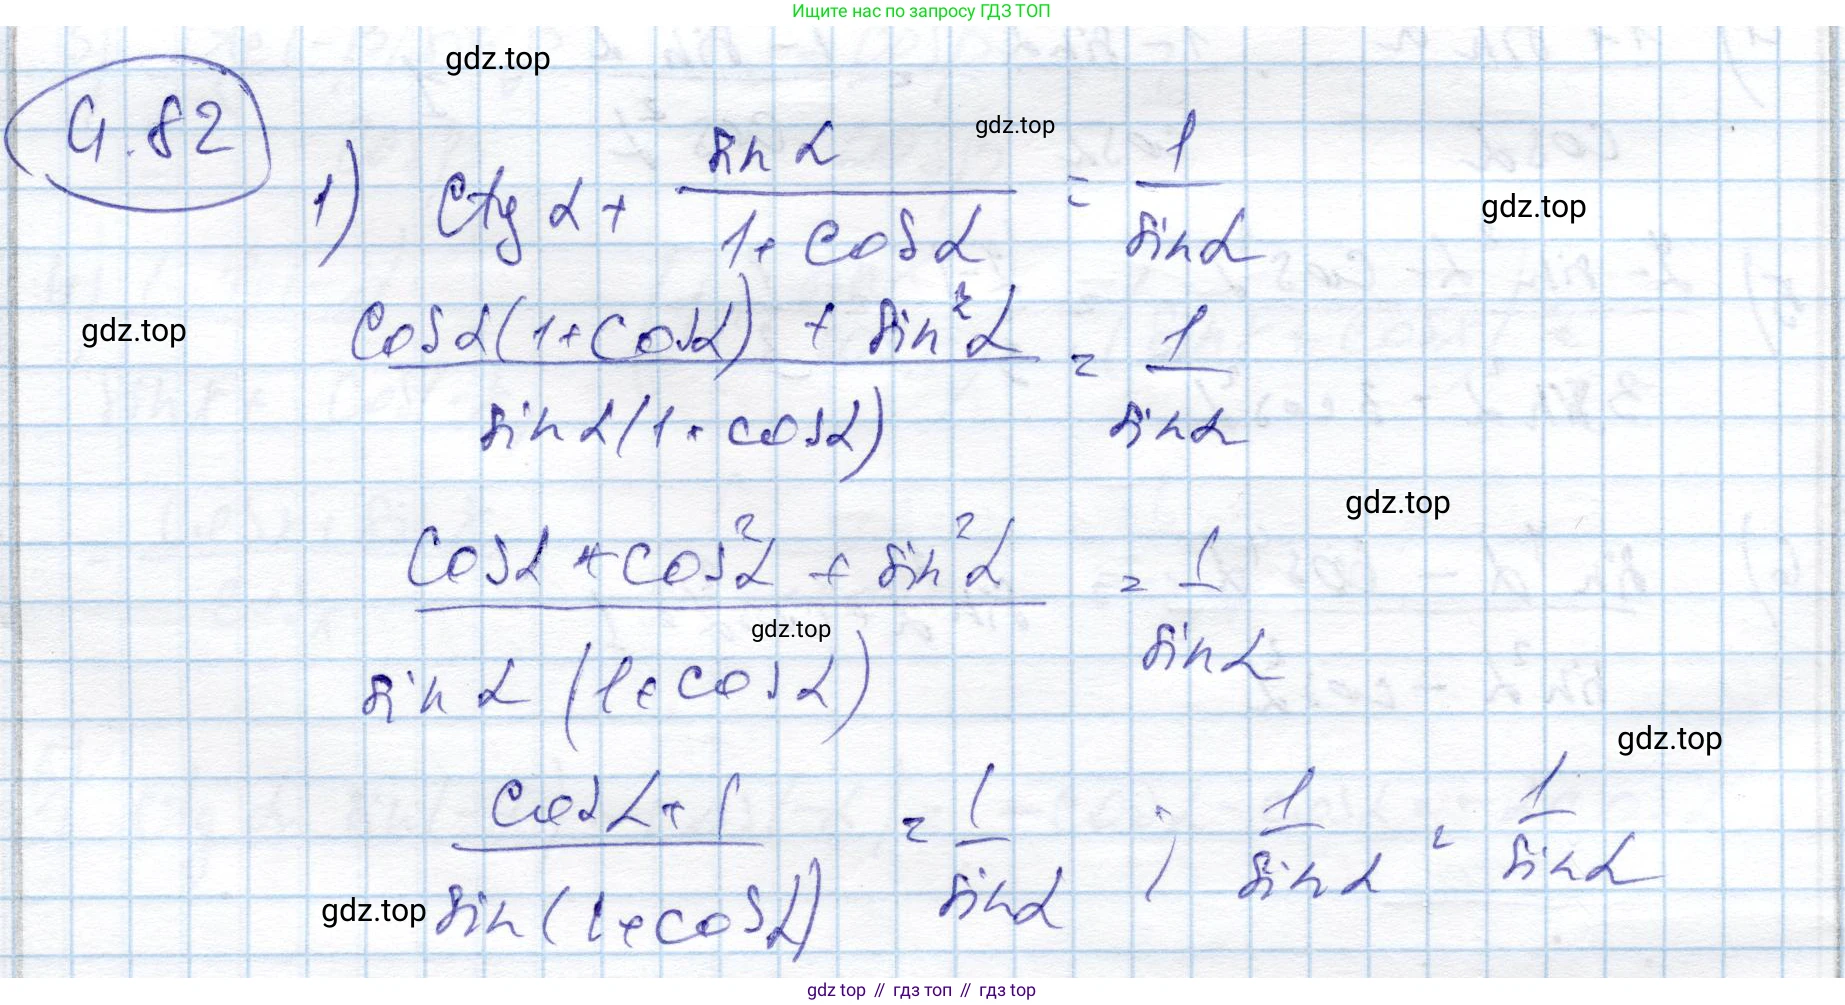 Ищите нас по запросу ГДЗ ТОП
gdz.top
gdz.top
4.82
1) ctg α + sin α / (1 + cos α) = 1 / sin α
gdz.top
gdz.top
(cos α (1 + cos α) + sin² α) / (sin α (1 + cos α)) = 1 / sin α
gdz.top
(cos α + cos² α + sin² α) / (sin α (1 + cos α)) = 1 / sin α
gdz.top
gdz.top
(cos α + 1) / (sin (1 + cos α)) = 1 / sin α ; 1 / sin α = 1 / sin α
gdz.top
gdz top // гдз топ // gdz top